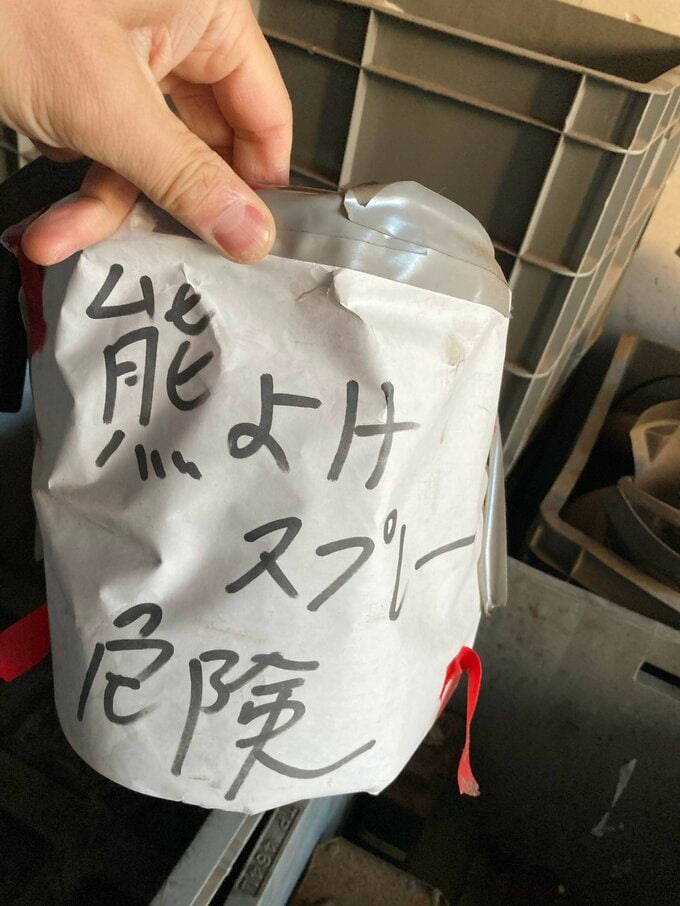 熊よけ
スプレー
危険